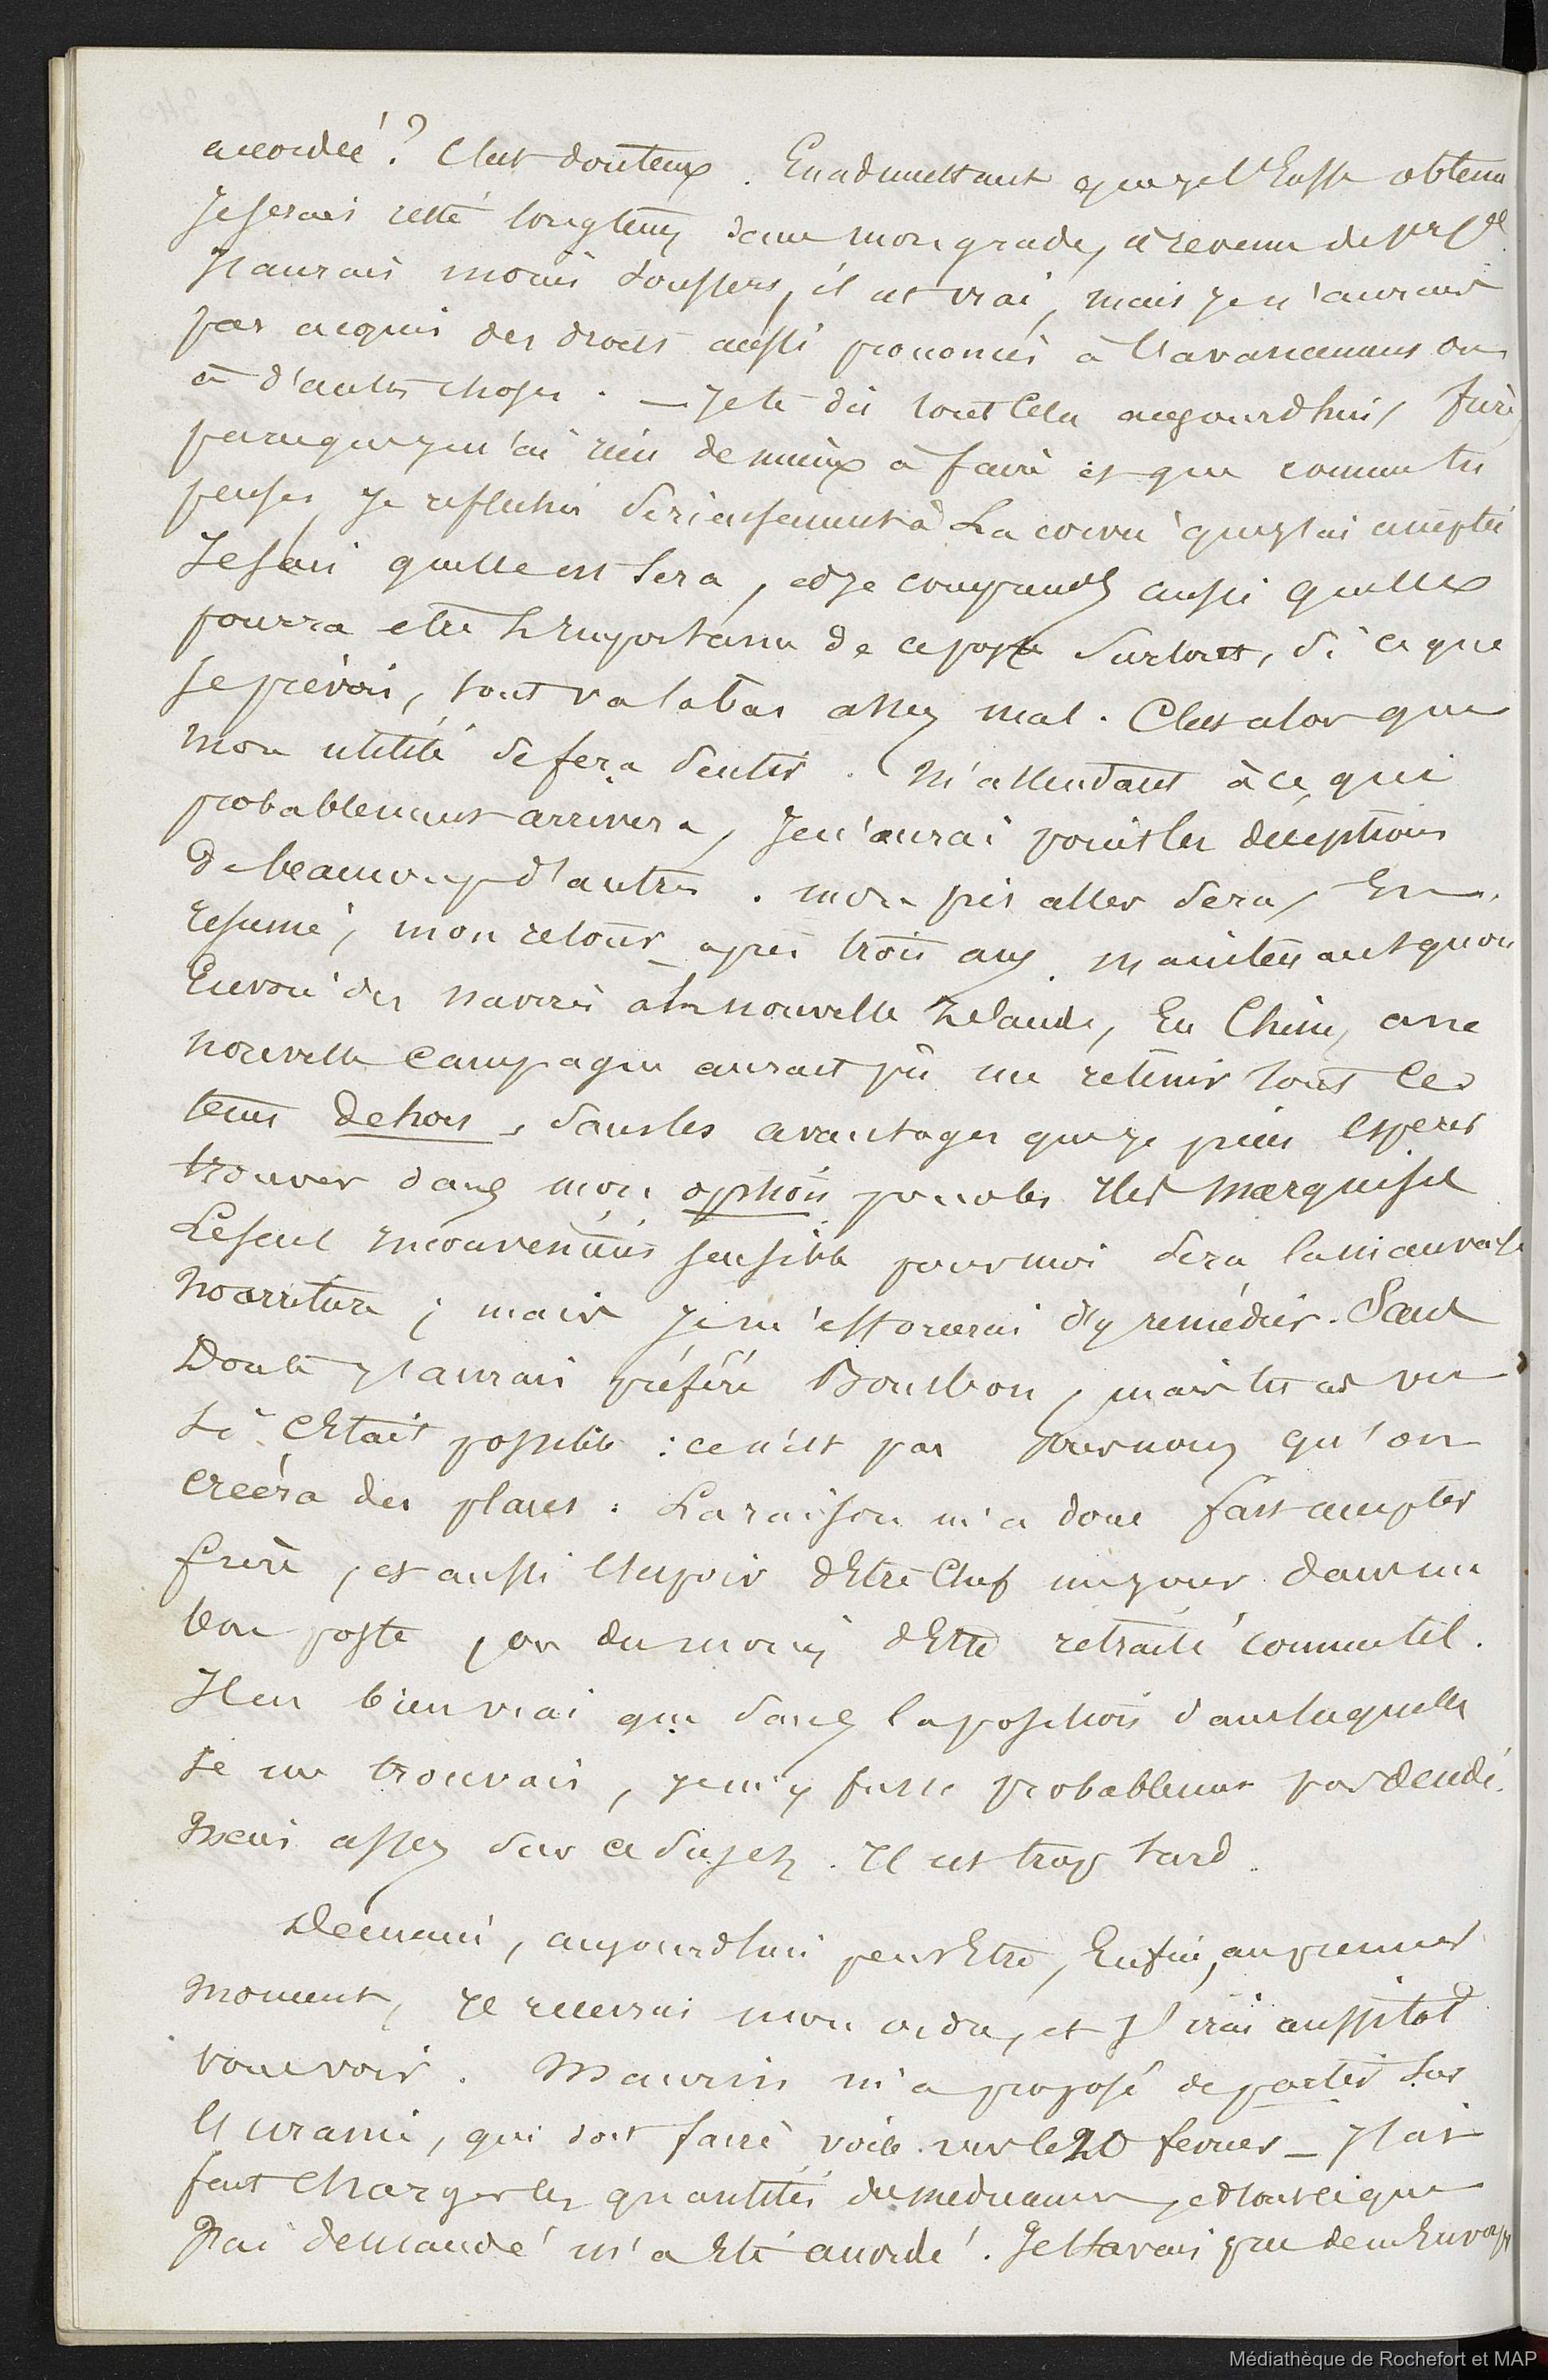 accordée ? C'est douteux. En admettant que je l'Eusse obtenu
Je serais resté longtems dans mon grade, à revenu de pr Cl.
J'aurais moins souffert, il est vrai, mais je n'aurais
pas acquis des droits aussi prononcés à l'avancement ou
à d'autres choses. — Je te dis tout Cela aujourdhui, frère
parceque je n'ai rien de mieux à faire et que comme tu
penses, Je reflechis serieusement à La corvée que j'ai acceptée
Je sais quelle en sera, et Je comprends aussi quelle
pourra etre L'Importance de ce poste surtout, si ce que
Je prévois, tout va labas assez mal. C'est alors que
mon utilité se fera sentir. M'attendant à ce qui
probablement arrivera, Je n'aurai point les deceptions
de beaucoup d'autres. mon pis aller sera, En
resumé, mon retour après trois ans. Maintenant qu'on
Envoie des navires à la nouvelle Zelande, En Chine, une
nouvelle Campagne aurait pû me retenir tout ce
tems dehors, sans les avantages que je puis esperer
trouver dans mon option pour les Iles Marquises
Le seul Inconvenient sensible pour moi sera la mauvaise
nourriture ; mais je m'efforcerai d'y remédier. Sans
Doute J'aurais préféré Bourbon, mais tu as vu
si c'Etait possible : ce n'est pas pour nous qu'on
créera des places : La raison m'a donc fait accepter
frère, et aussi l'Espoir d'Etre Chef un jour dans un
bon poste, ou du moins d'Etre retraité comme tel.
Il est bien vrai que dans la position dans laquelle
Je me trouvais, je m'y fusse probablement pas decidé.
Mais assez sur ce sujet. Il est trop tard.
Demain, aujourdhui peut Etre, Enfin, au premier
moment, Je recevrai mon ordre, et J'irai aussitot
vous voir. Maurin m'a proposé de partir sur
L'uranie, qui doit faire voile vers le 20 fevrier — J'ai
fait Charger les quantités de medicamens, et tout ce que
J'ai demandé m'a Eté accordé. Je l'avais prié de m'Envoyer
Médiathèque de Rochefort et MAP